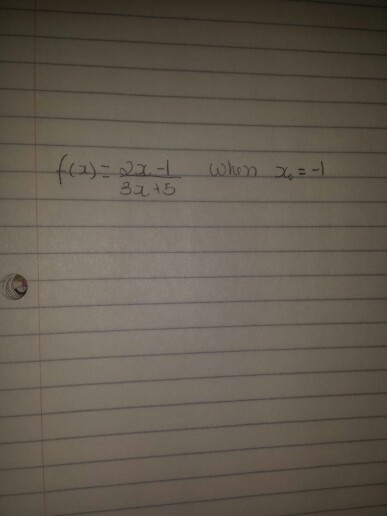 f(x) = 2x-1 / 3x+5 when x₀ = -1